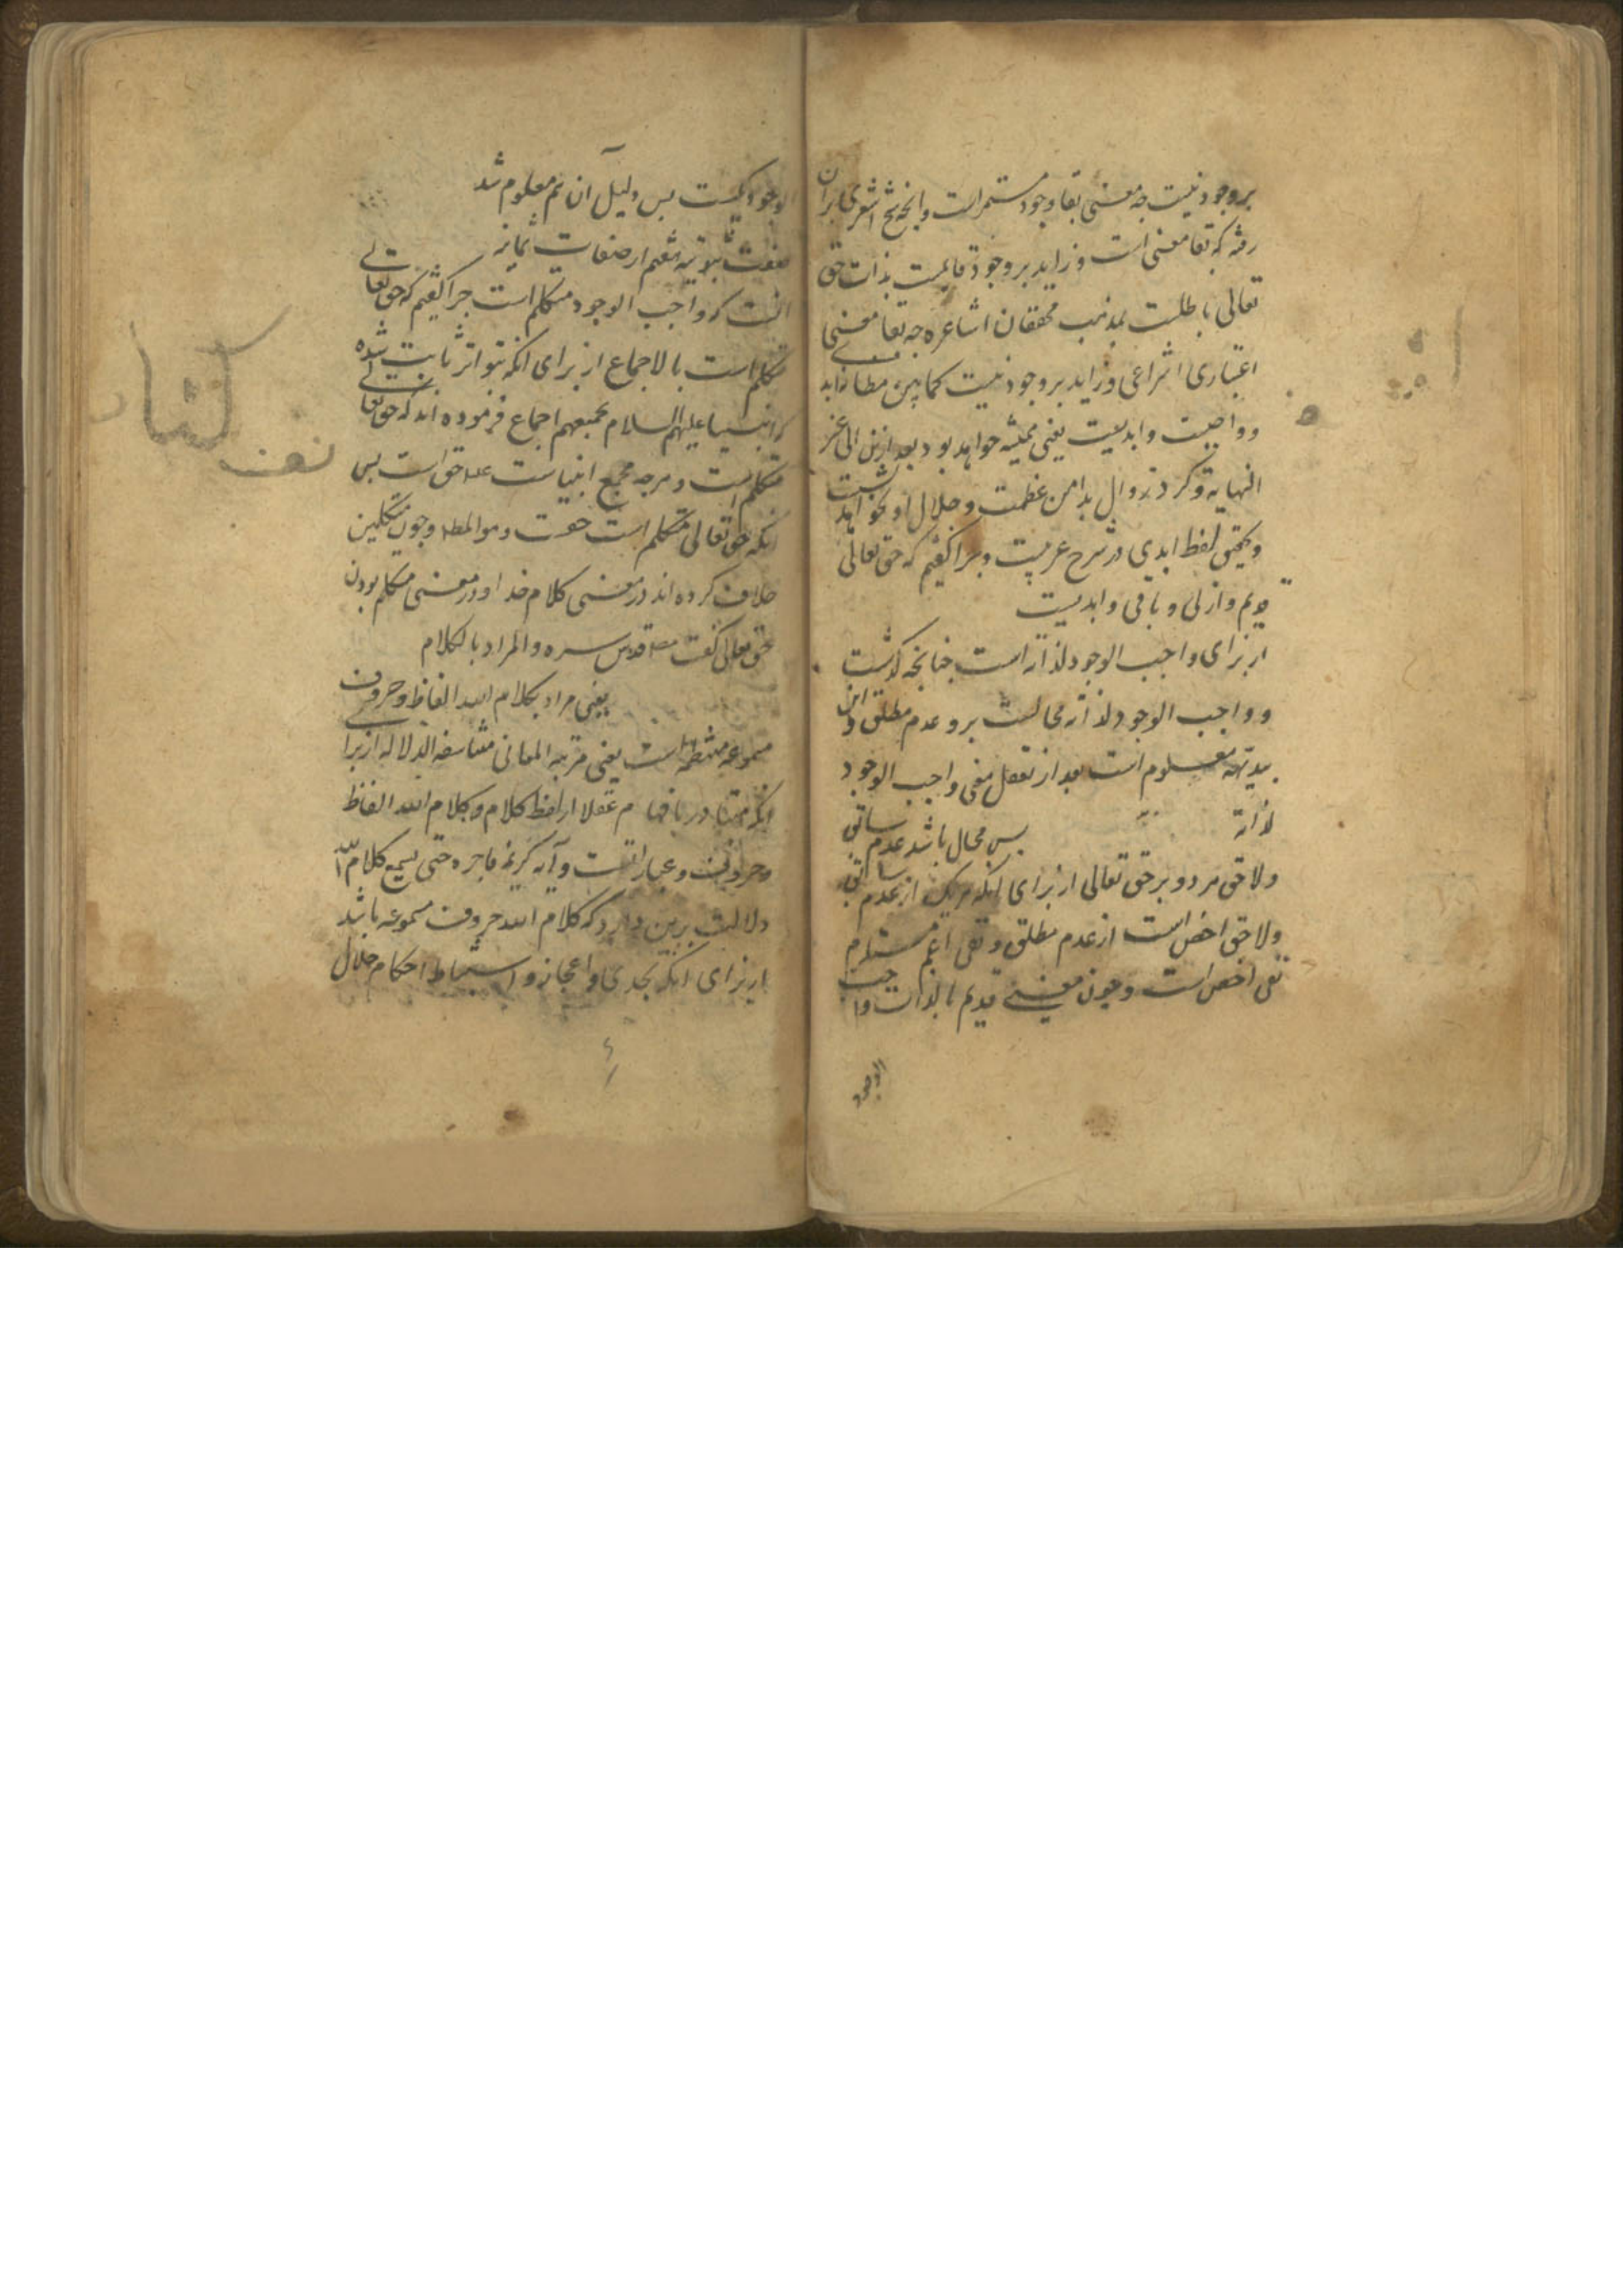 بر وجود نیست چه معنی بقا وجود مستمر است وانچه شیخ اشعری بران
رفته که بقا معنی است و زاید بر وجود قایمست بذات حق
تعالی باطلست بمذهب محققان اشاعره چه بقا معنی
اعتباری انتزاعی و زاید بر وجود نیست کما بین
و واجبست وابدیست یعنی همیشه خواهد بود بعد ازین الی غیر
النهایة و کرد زوال بدامن عظمت و جلال او نخواهد نشست
وتحقیق لفظ ابدی در شرح عربیست و چرا کفتیم که حق تعالی
قدیم وازلی و باقی وابدیست
از برای واجب الوجود لذاته است چنانچه کذشت
و واجب الوجود لذاته محالست برو عدم مطلق و این
بدیهة معلوم است بعد از تعقل معنی واجب الوجود
لذاته پس محال باشد عدم سابق
ولاحق هر دو بر حق تعالی از برای انکه هر یک از عدم سابق
ولاحق اخص است از عدم مطلق و نفی اعم مستلزم
نفی اخص است و چون معنی قدیم بالذات واجب
الوجود
الوجود یکیست پس دلیل آن هم معلوم شد
صفت ثبوتیه هشتم از صفات ثمانیه
انست که واجب الوجود متکلم است چرا کفتیم که حق تعالی
متکلم است بالاجماع از برای انکه بتواتر ثابت شده
که انبیا علیهم السلام بجمیعهم اجماع فرموده اند که حق تعالی
متکلم است و هرچه مجمع انبیاست علیه حق است پس
انکه حق تعالی متکلم است حقست وهو المط و چون متکلمین
خلاف کرده اند در معنی کلام خدا و در معنی متکلم بودن
حق تعالی کفت مص قدس سره والمراد بالکلام
یعنی مراد بکلام الله الفاظ و حروف
مسموعه منتظمه است یعنی مرتبة المعانی متناسقة الدلاله از برای
انکه متبادر بافهام عقلا از لفظ کلام و کلام الله الفاظ
وحروفست وعباراتست وآیه کریمه فاجره حتی یسمع کلام الله
دلالت برین دارد که کلام الله حروف مسموعه باشد
از برای انکه تحدی واعجاز و استنباط احکام حلال